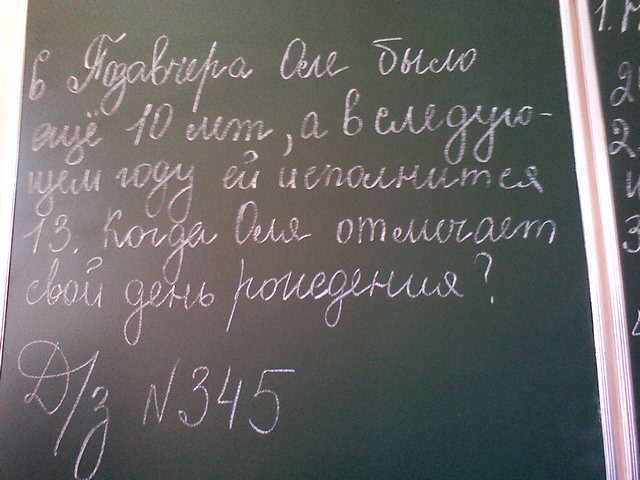 6 Позавчера Оле было
ещё 10 лет, а в следую-
щем году ей исполнится
13. Когда Оля отмечает
свой день рождения?
Д/з N 345
1.
2
2.
3